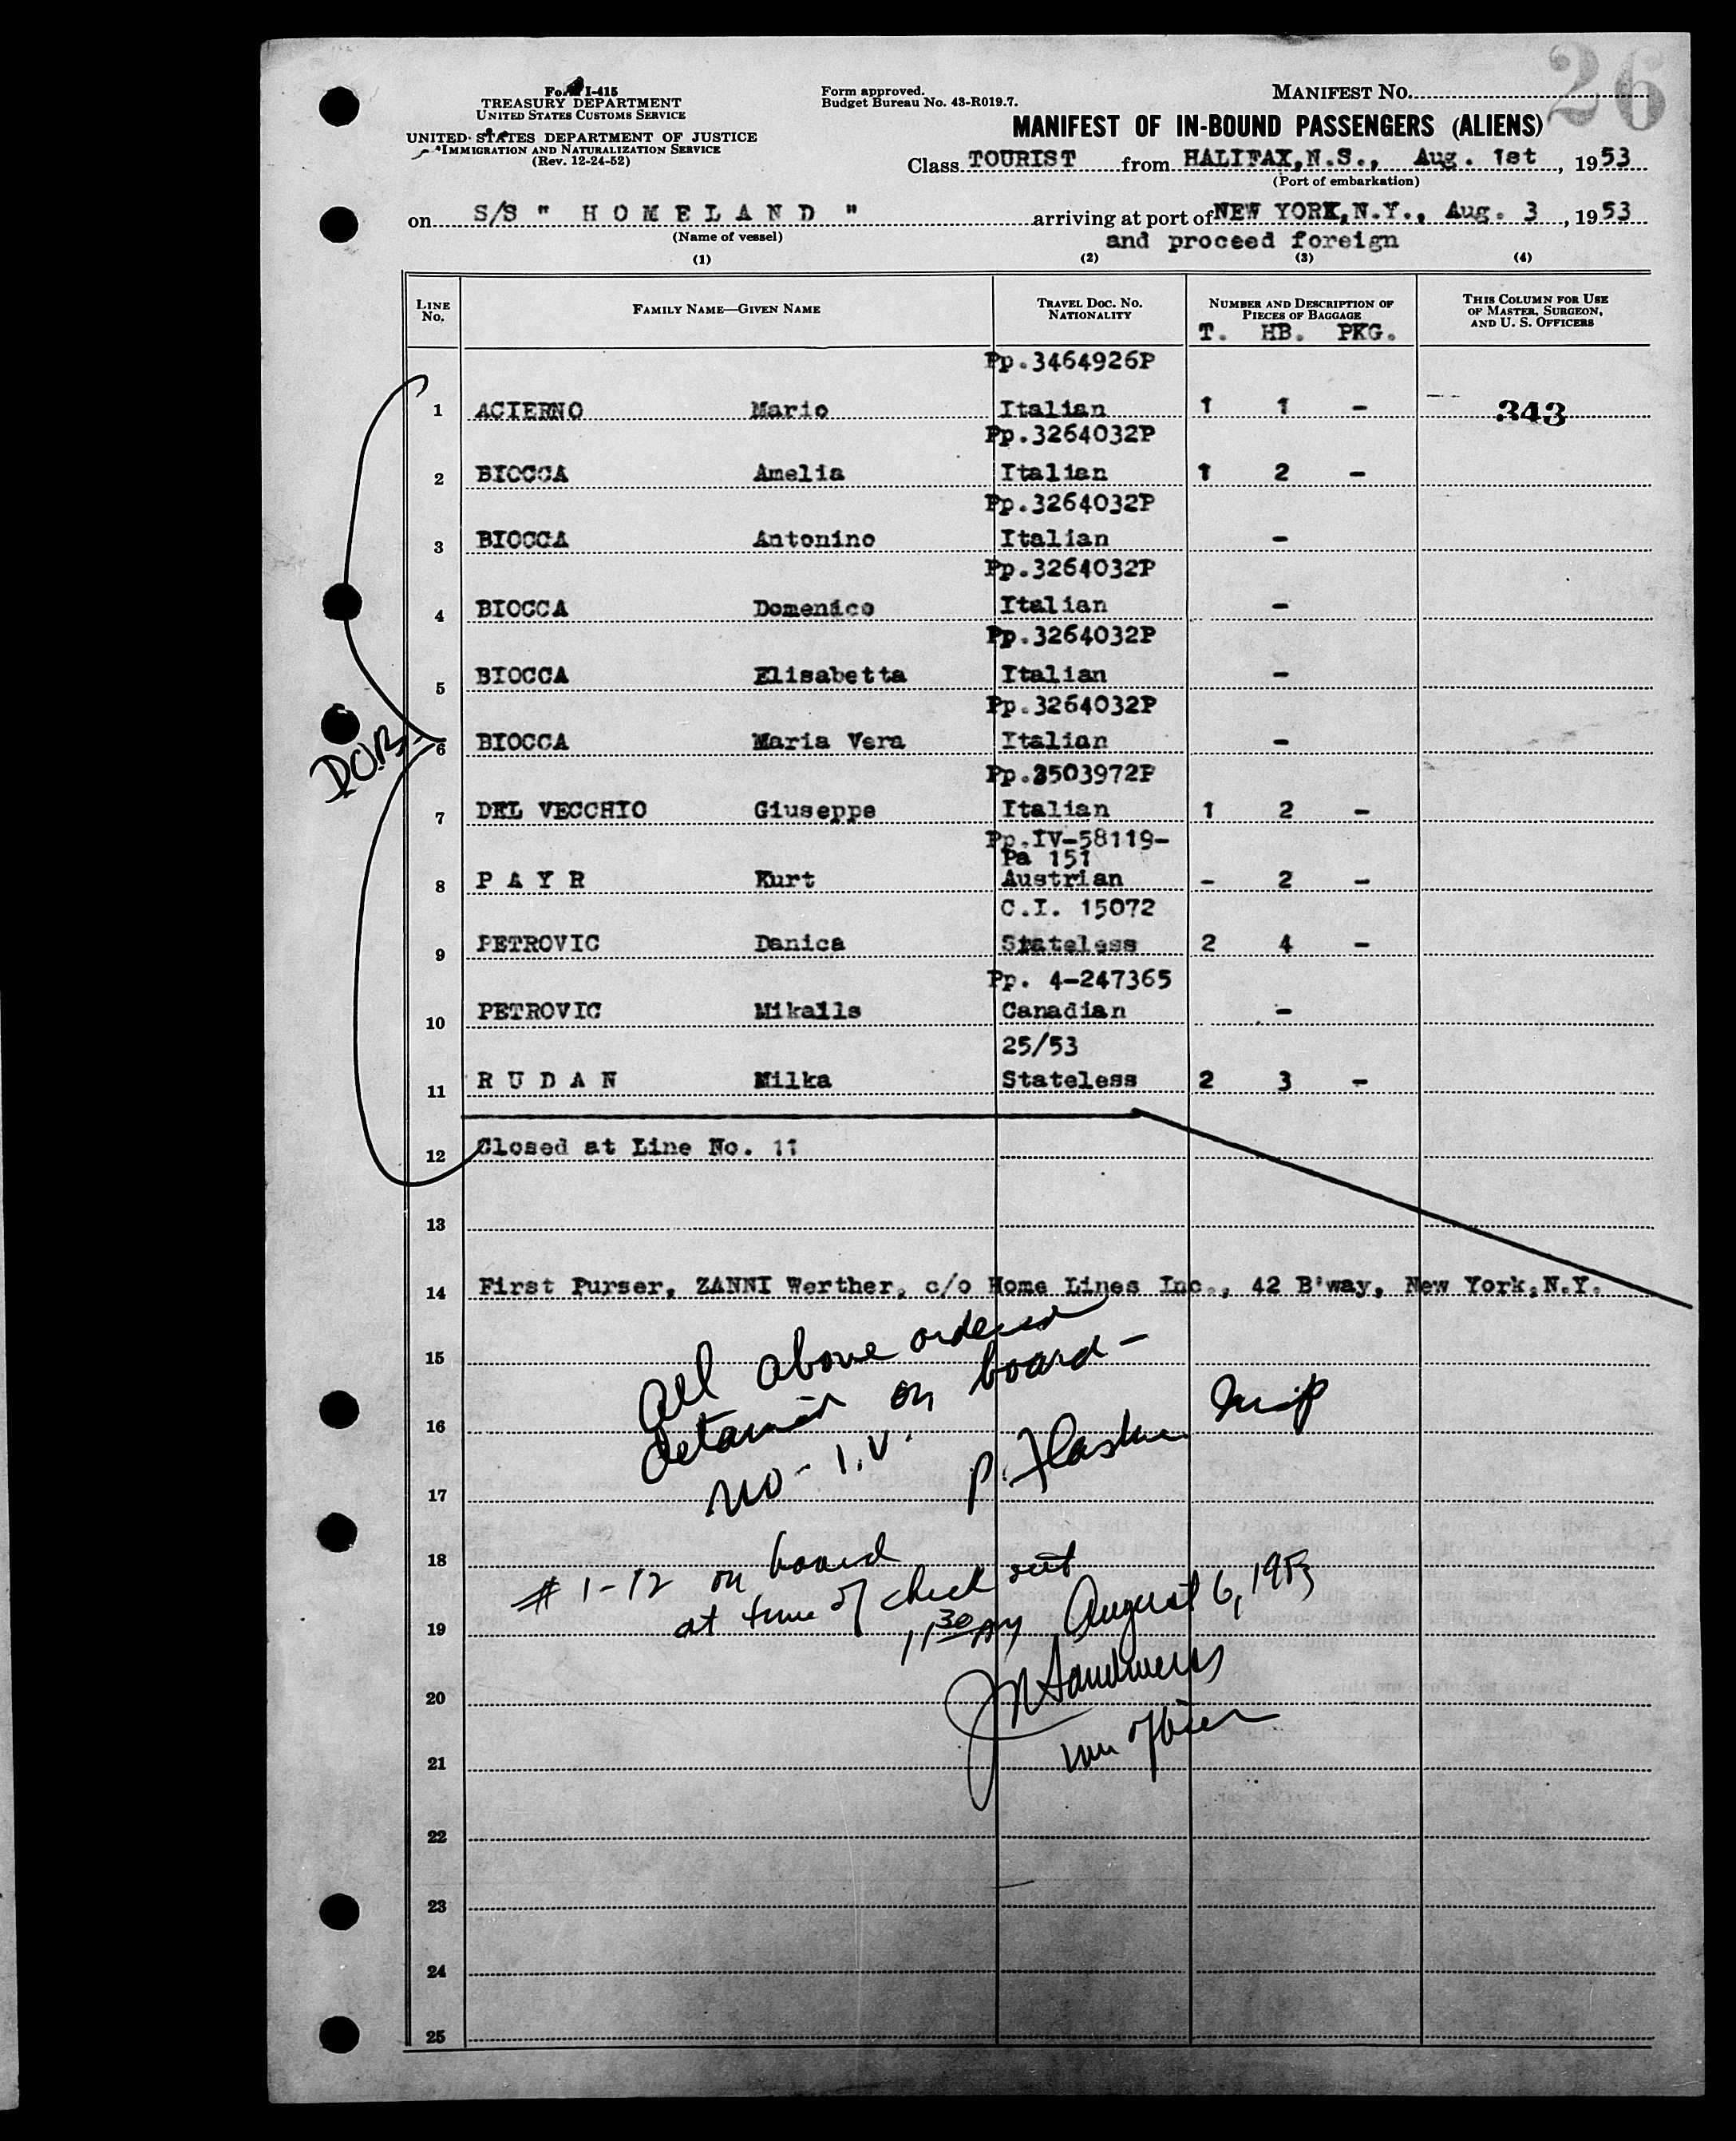 26
Form I-415
TREASURY DEPARTMENT
UNITED STATES CUSTOMS SERVICE
UNITED STATES DEPARTMENT OF JUSTICE
IMMIGRATION AND NATURALIZATION SERVICE
(Rev. 12-24-52)
Form approved.
Budget Bureau No. 43-R019.7.
MANIFEST NO.
MANIFEST OF IN-BOUND PASSENGERS (ALIENS)
Class TOURIST from HALIFAX, N.S., Aug. 1st, 1953
(Port of embarkation)
on S/S " H O M E L A N D " arriving at port of NEW YORK, N.Y., Aug. 3, 1953
(Name of vessel)
and proceed foreign
(1) (2) (3) (4)
LINE NO. FAMILY NAME—GIVEN NAME TRAVEL DOC. NO. NATIONALITY NUMBER AND DESCRIPTION OF PIECES OF BAGGAGE THIS COLUMN FOR USE OF MASTER, SURGEON, AND U. S. OFFICERS
T. HB. PKG.
Pp.3464926P
1 ACIERNO Mario Italian 1 1 - 343
Pp.3264032P
2 BIOCCA Amelia Italian 1 2 -
Pp.3264032P
3 BIOCCA Antonino Italian -
Pp.3264032P
4 BIOCCA Domenico Italian -
Pp.3264032P
5 BIOCCA Elisabetta Italian -
Pp.3264032P
DOB 6 BIOCCA Maria Vera Italian -
Pp.3503972P
7 DEL VECCHIO Giuseppe Italian 1 2 -
Pp.IV-58119-
Pa 151
8 P A Y R Kurt Austrian - 2 -
C.I. 15072
9 PETROVIC Danica Stateless 2 4 -
Pp. 4-247365
10 PETROVIC Mikails Canadian -
25/53
11 R U D A N Milka Stateless 2 3 -
12 Closed at Line No. 11
13
14 First Purser, ZANNI Werther, c/o Home Lines Inc., 42 B'way, New York, N.Y.
15 All above ordered
16 detained on board -
17 no - I.V.
18 # 1-12 on board
19 at time of check out
11 30 AM August 6, 1953
20
21
22
23
24
25